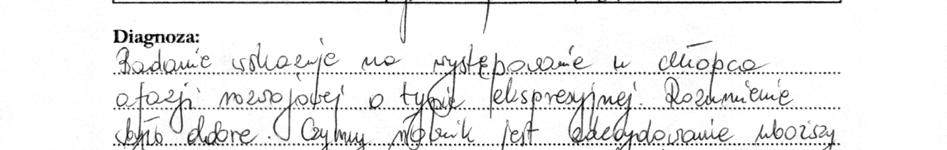 Diagnoza:
Badanie wskazuje na występowanie u chłopca
afazji rozwojowej o typie ekspresyjnej. Rozumienie
było dobre. Czynny słownik jest zdecydowanie uboższy